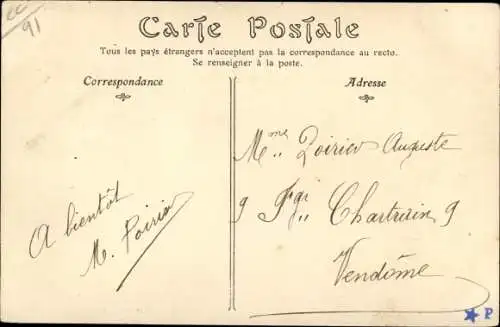 cc
91
Carte Postale
Tous les pays étrangers n'acceptent pas la correspondance au recto.
Se renseigner à la poste.
Correspondance
Adresse
A bientôt
M. Poirier
Mme Poirier Auguste
9 Fg Chartrain 9
Vendôme
P